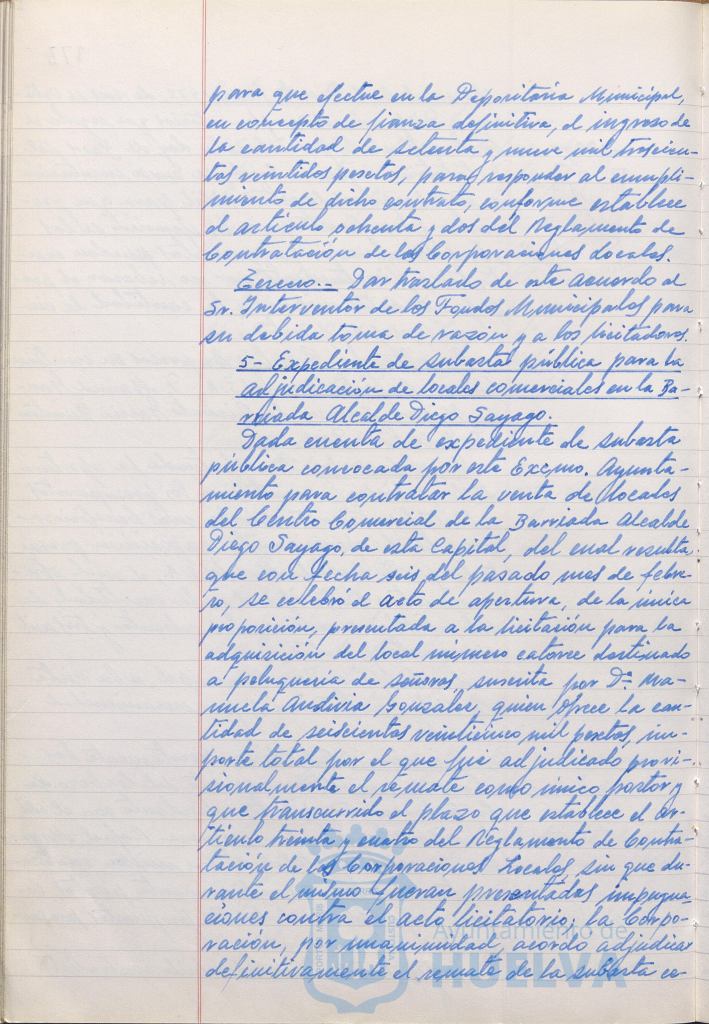 para que efectue en la Depositaria Municipal,
en concepto de fianza definitiva, el ingreso de
la cantidad de setenta y nueve mil trescien-
tas veintidos pesetas, para responder al cumpli-
miento de dicho contrato, conforme establece
el articulo ochenta y dos del Reglamento de
Contratación de las Corporaciones Locales.
Tercero.- Dar traslado de este acuerdo al
Sr. Interventor de los Fondos Municipales para
su debida toma de razón y a los licitadores.
5- Expediente de subasta pública para la
adjudicación de locales comerciales en la Ba-
rriada Alcalde Diego Sayago.
Dada cuenta de expediente de subasta
pública convocada por este Excmo. Ayunta-
miento para contratar la venta de locales
del Centro Comercial de la Barriada Alcalde
Diego Sayago, de esta Capital, del cual resulta,
que con fecha seis del pasado mes de febre-
ro, se celebró el acto de apertura, de la única
proposición, presentada a la licitación para la
adquisición del local número catorce destinado
a peluquería de señoras, suscrita por Dª. Ma-
nuela Andivia González, quien ofrece la can-
tidad de seiscientas veinticinco mil pesetas, im-
porte total por el que fué adjudicado provi-
sionalmente el remate como único postor y
que transcurrido el plazo que establece el ar-
tículo treinta y cuatro del Reglamento de Contra-
tación de las Corporaciones Locales, sin que du-
rante el mismo fueran presentadas impugna-
ciones contra el acto licitatorio; la Corpo-
ración, por unanimidad, acordo adjudicar
definitivamente el remate de la subasta ce-
Ayuntamiento de
HUELVA